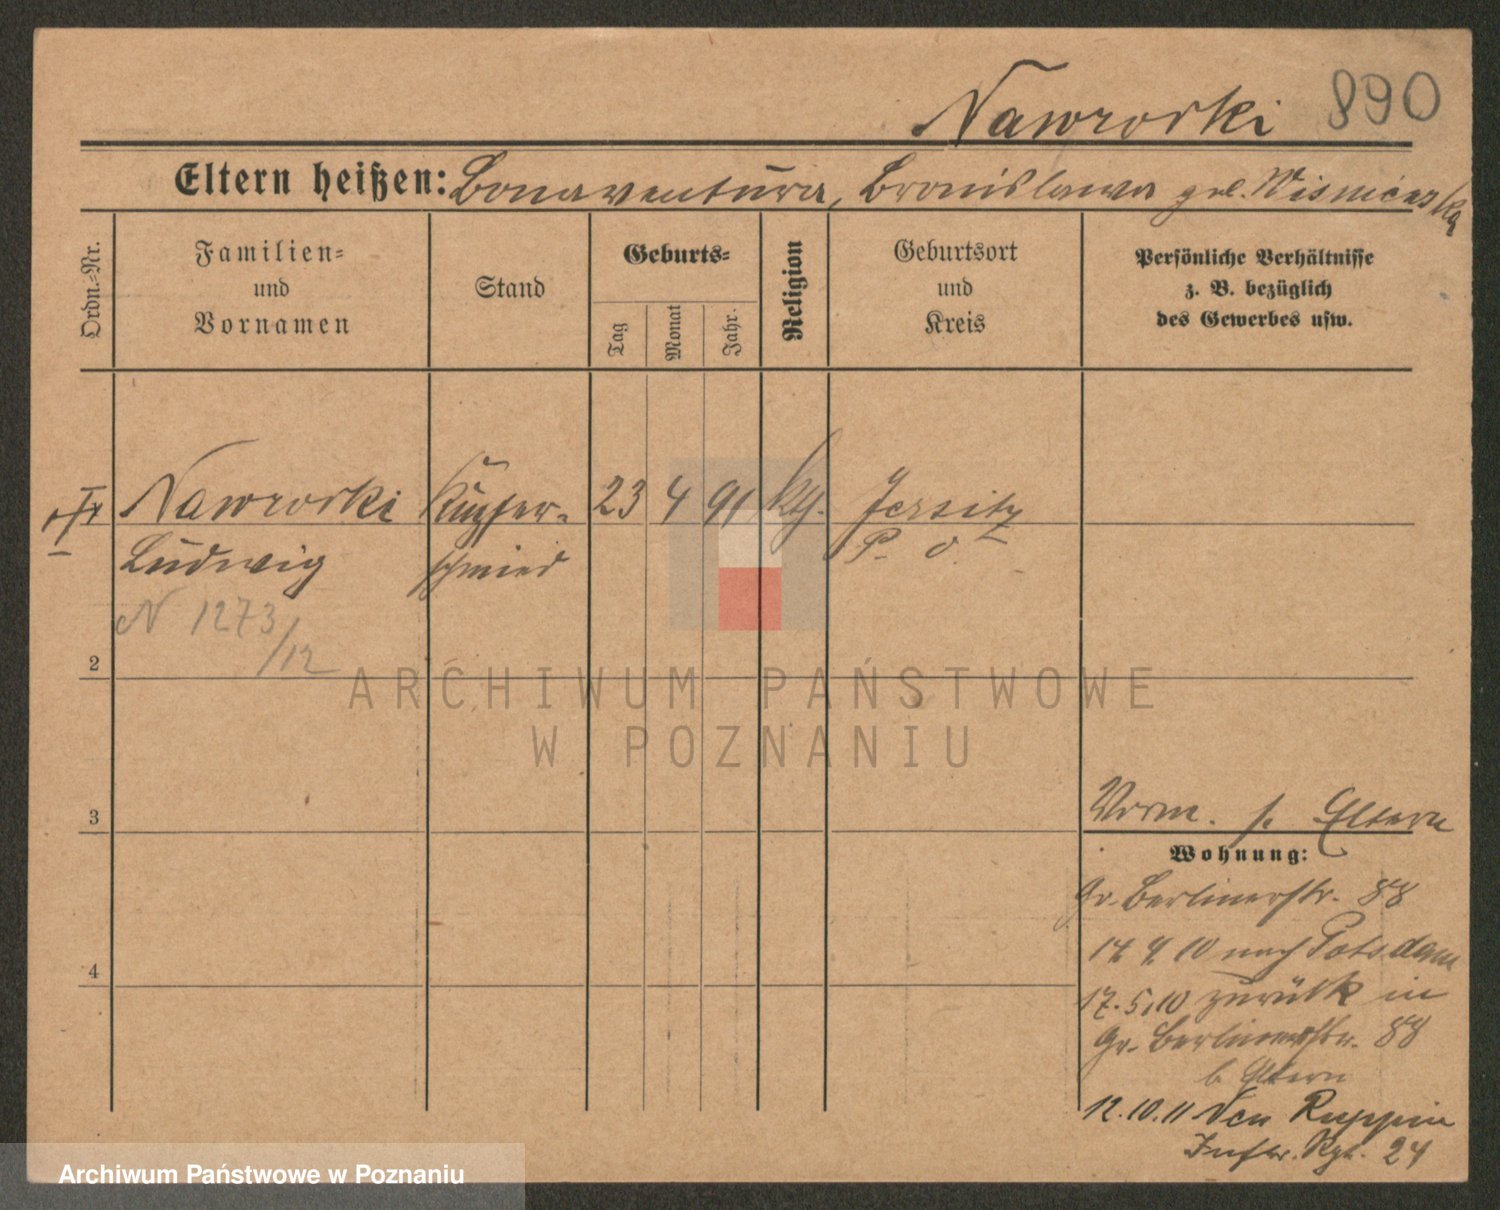 Nawrocki 890
Eltern heißen: Bonaventura, Bronislawa geb. Wisnienska
Ordn.-Nr.
Familien- und Vornamen
Stand
Geburts-
Tag
Monat
Jahr.
Religion
Geburtsort und Kreis
Persönliche Verhältnisse z. B. bezüglich des Gewerbes usw.
Nawrocki Kupfer- 23 4 91 kth. Jersitz
Ludwig schmied P. O.
N 1273/12
2
3
4
ARCHIWUM PAŃSTWOWE
W POZNANIU
Vorm. s. Eltern
Wohnung:
Gr. Berlinerstr. 88
17.5.10 zurück in
nach Potsdam
Gr. Berlinerstr. 88
b. Eltern
12.10.11 Neu Ruppin
Inftr. Rgt. 24
Archiwum Państwowe w Poznaniu